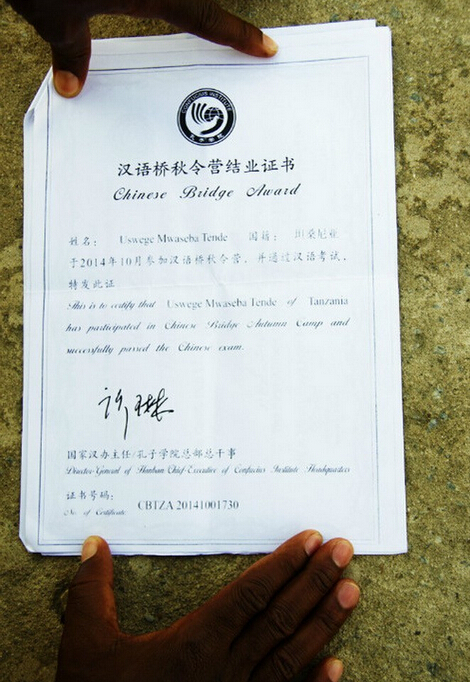 CONFUCIUS INSTITUTE
孔子学院
汉语桥秋令营结业证书
Chinese Bridge Award
姓名： Uswege Mwaseba Tende 国籍： 坦桑尼亚
于2014年10月参加汉语桥秋令营，并通过汉语考试，
特发此证
This is to certify that Uswege Mwaseba Tende of Tanzania
has participated in Chinese Bridge Autumn Camp and
successfully passed the Chinese exam.
许琳
国家汉办主任/孔子学院总部总干事
Director-General of Hanban Chief-Executive of Confucius Institute Headquarters
证书号码：
No. of Certificate CBTZA 20141001730